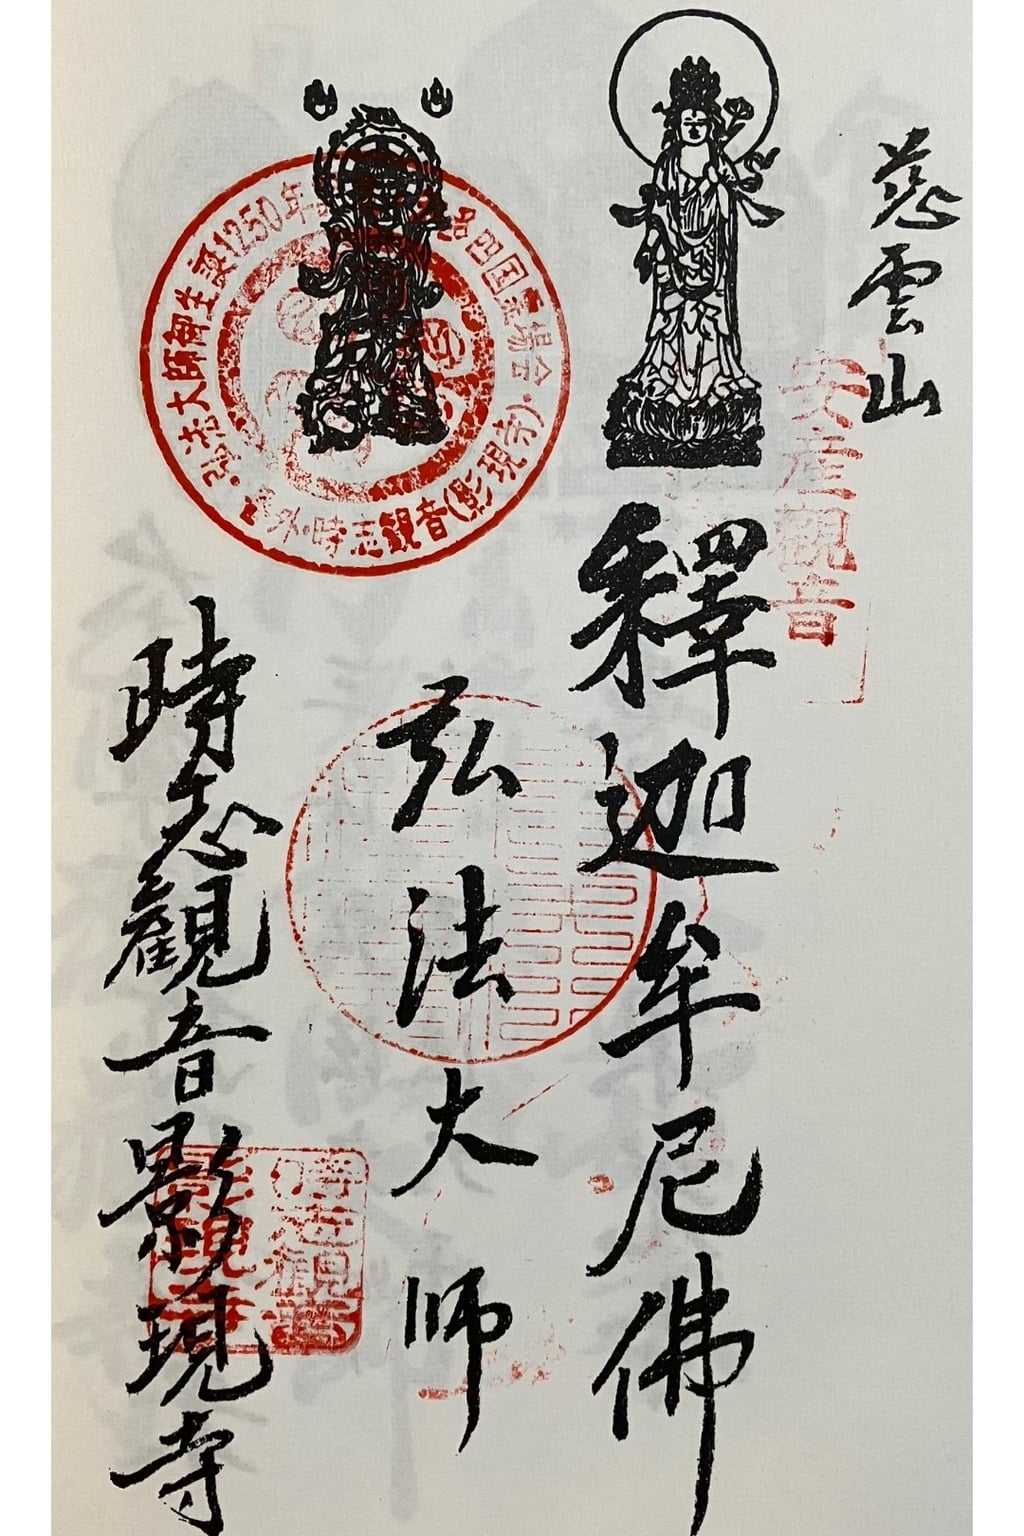 慈雲山
安産観音
釋迦牟尼佛
弘法大師
弘法大師御生誕1250年
四国霊場会・
外時志観音(影現寺)・
時志觀音影現寺
時志観音
影現寺